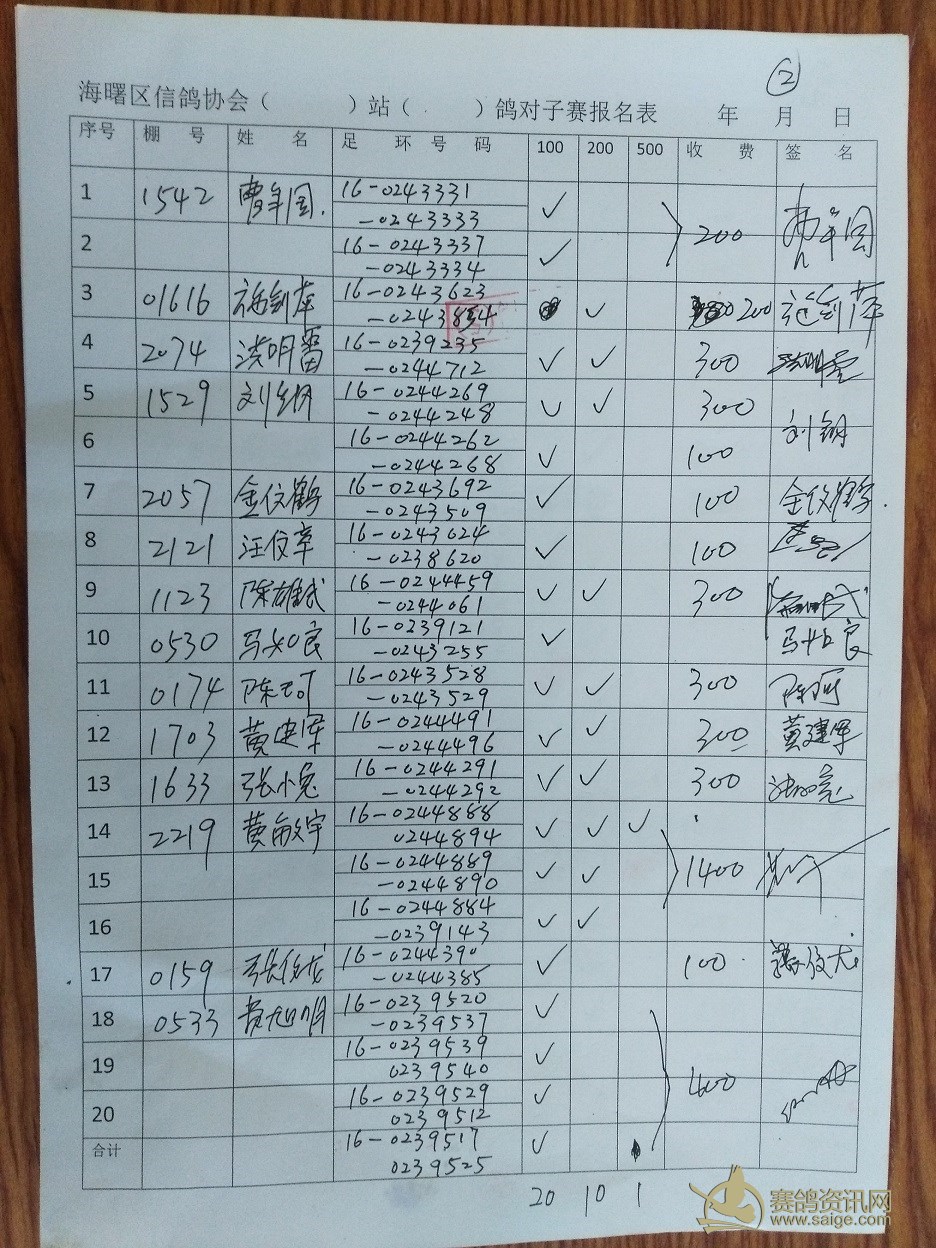 ②
海曙区信鸽协会（ ）站（ ）鸽对子赛报名表 年 月 日
序号 棚 号 姓 名 足 环 号 码 100 200 500 收 费 签 名
1 1542 曹年国 16-0243331 ✓ 200
-0243333
2 16-0243337 ✓
-0243334
3 01616 16-0243623 ✓ 200
-0243854
4 2074 洪明雷 16-0239235 ✓ ✓ 300
-0244712
5 1529 刘钢 16-0244269 ✓ ✓ 300 刘钢
-0244248
6 16-0244262 ✓ 100
-0244268
7 2057 金仪鹤 16-0243692 ✓ 100
-0243509
8 2121 汪仪章 16-0243024 ✓ 100
-0238620
9 1123 陈雄武 16-0244459 ✓ ✓ 300
-0244061
10 0530 马如良 16-0239121 ✓ 马如良
-0243255
11 0174 陈可 16-0243528 ✓ ✓ 300
-0243529
12 1703 黄建军 16-0244491 ✓ ✓ 300 黄建军
-0244496
13 1633 张小亮 16-0244291 ✓ ✓ 300
-0244292
14 2219 黄敏宇 16-0244888 ✓ ✓ ✓ 1400
0244894
15 16-0244889 ✓ ✓
-0244890
16 16-0244884 ✓ ✓
-0239143
17 0159 张仪龙 16-0244390 ✓ 100
-0244385
18 0533 黄旭明 16-0239520 ✓ 400
-0239537
19 16-0239539 ✓
0239540
20 16-0239529 ✓
0239512
合计 16-0239517 ✓
0239525
20 10 1
赛鸽资讯网
www.saige.com